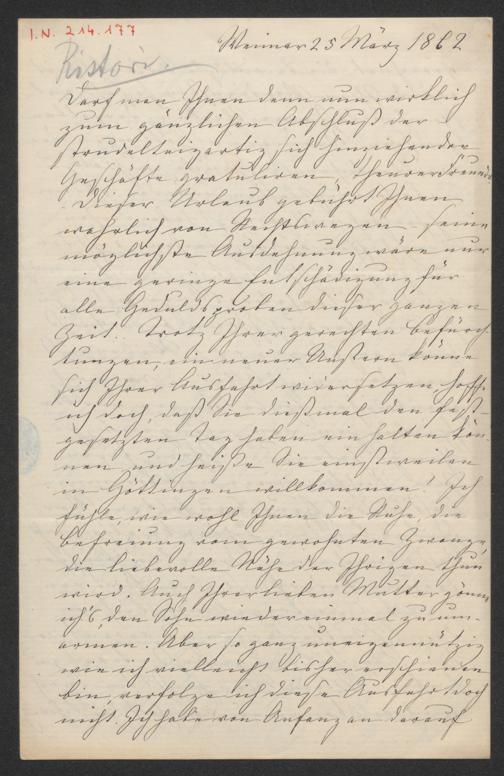 I.N. 214.177
Weimar 25 März 1862
Ristori.
Darf man Ihnen denn nun wirklich
zum gänzlichen Abschluß der
strudelteigartig sich hinziehenden
Geschäfte gratuliren, theurer Freund?
Dieser Urlaub gebührt Ihnen
wahrlich von Rechtswegen – seine
möglichste Ausdehnung wäre nur
eine geringe Entschädigung für
alle Geduldsproben dieser ganzen
Zeit. Trotz Ihrer gerechten Befürch-
tungen, ein neuer Unstern könne
sich Ihrer Ausfahrt widersetzen, hoffe
ich doch, daß Sie dießmal den fest-
gesetzten Tag haben einhalten kön-
nen und heiße Sie einstweilen
in Göttingen willkommen! Ich
fühle, wie wohl Ihnen die Ruhe, die
Befreiung vom gewohnten Zwange,
die liebevolle Nähe der Ihrigen thun
wird. Auch Ihrer lieben Mutter gönne
ich's, den Sohn wieder einmal zu um-
armen. Aber so ganz uneigennützig
wie ich vielleicht bisher erschienen
bin, verfolge ich diese Ausfahrt doch
nicht. Ich habe von Anfang an darauf